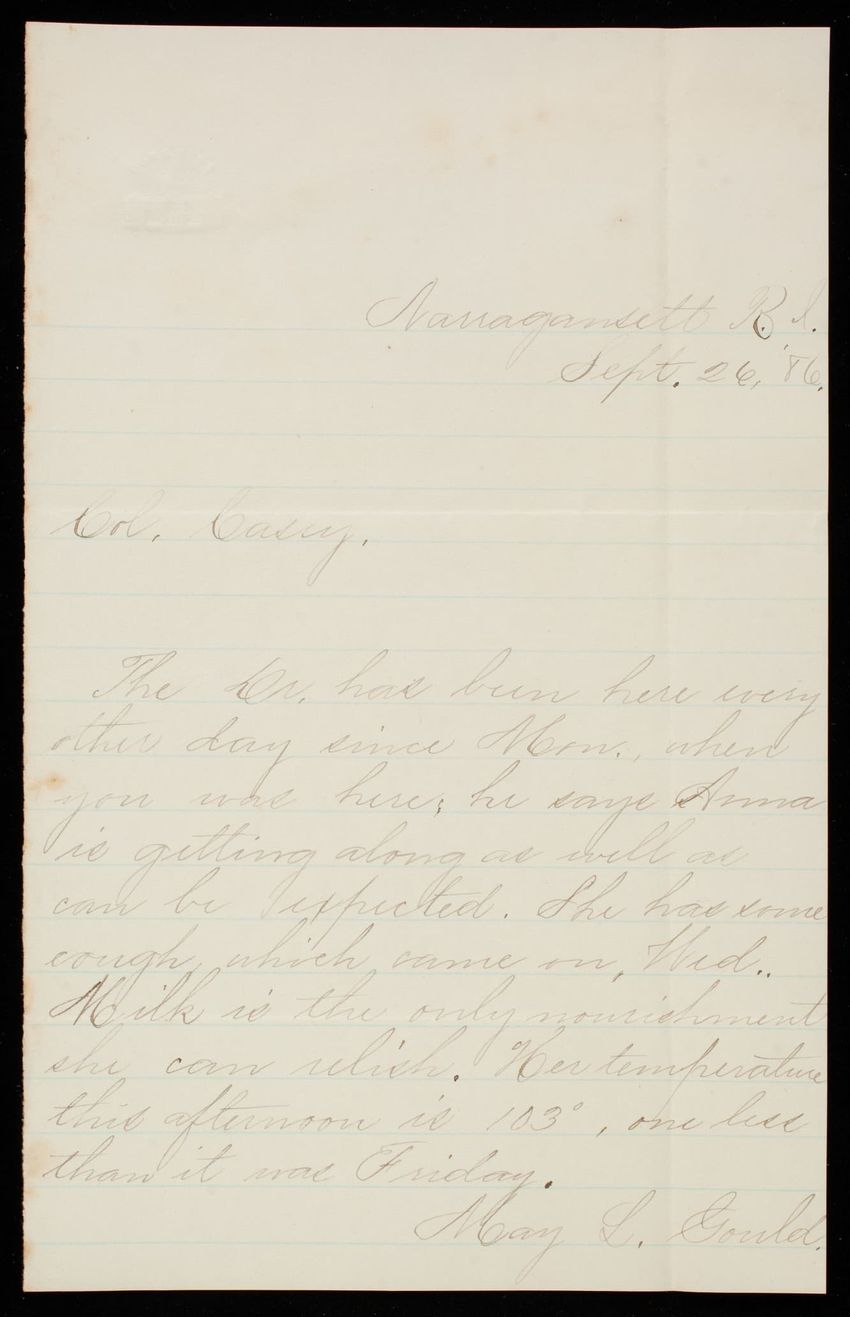 Narragansett R. I.
Sept. 26, '86.
Col. Casey.
The Dr. has been here every
other day since Mon., when
you was here; he says Anna
is getting along as well as
can be expected. She has some
cough, which came on, Wed..
Milk is the only nourishment
she can relish. Her temperature
this afternoon is 103°, one less
than it was Friday.
May L. Gould.